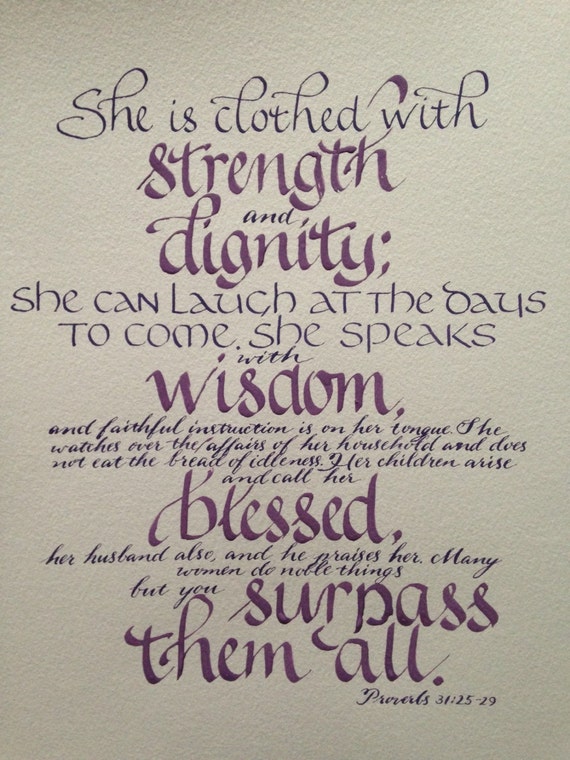 She is clothed with
strength
and
dignity;
she can laugh at the days
to come. she speaks
with
wisdom,
and faithful instruction is on her tongue. She
watches over the affairs of her household and does
not eat the bread of idleness. Her children arise
and call her
blessed,
her husband also, and he praises her. Many
women do noble things
but you surpass
them all.
Proverbs 31:25-29